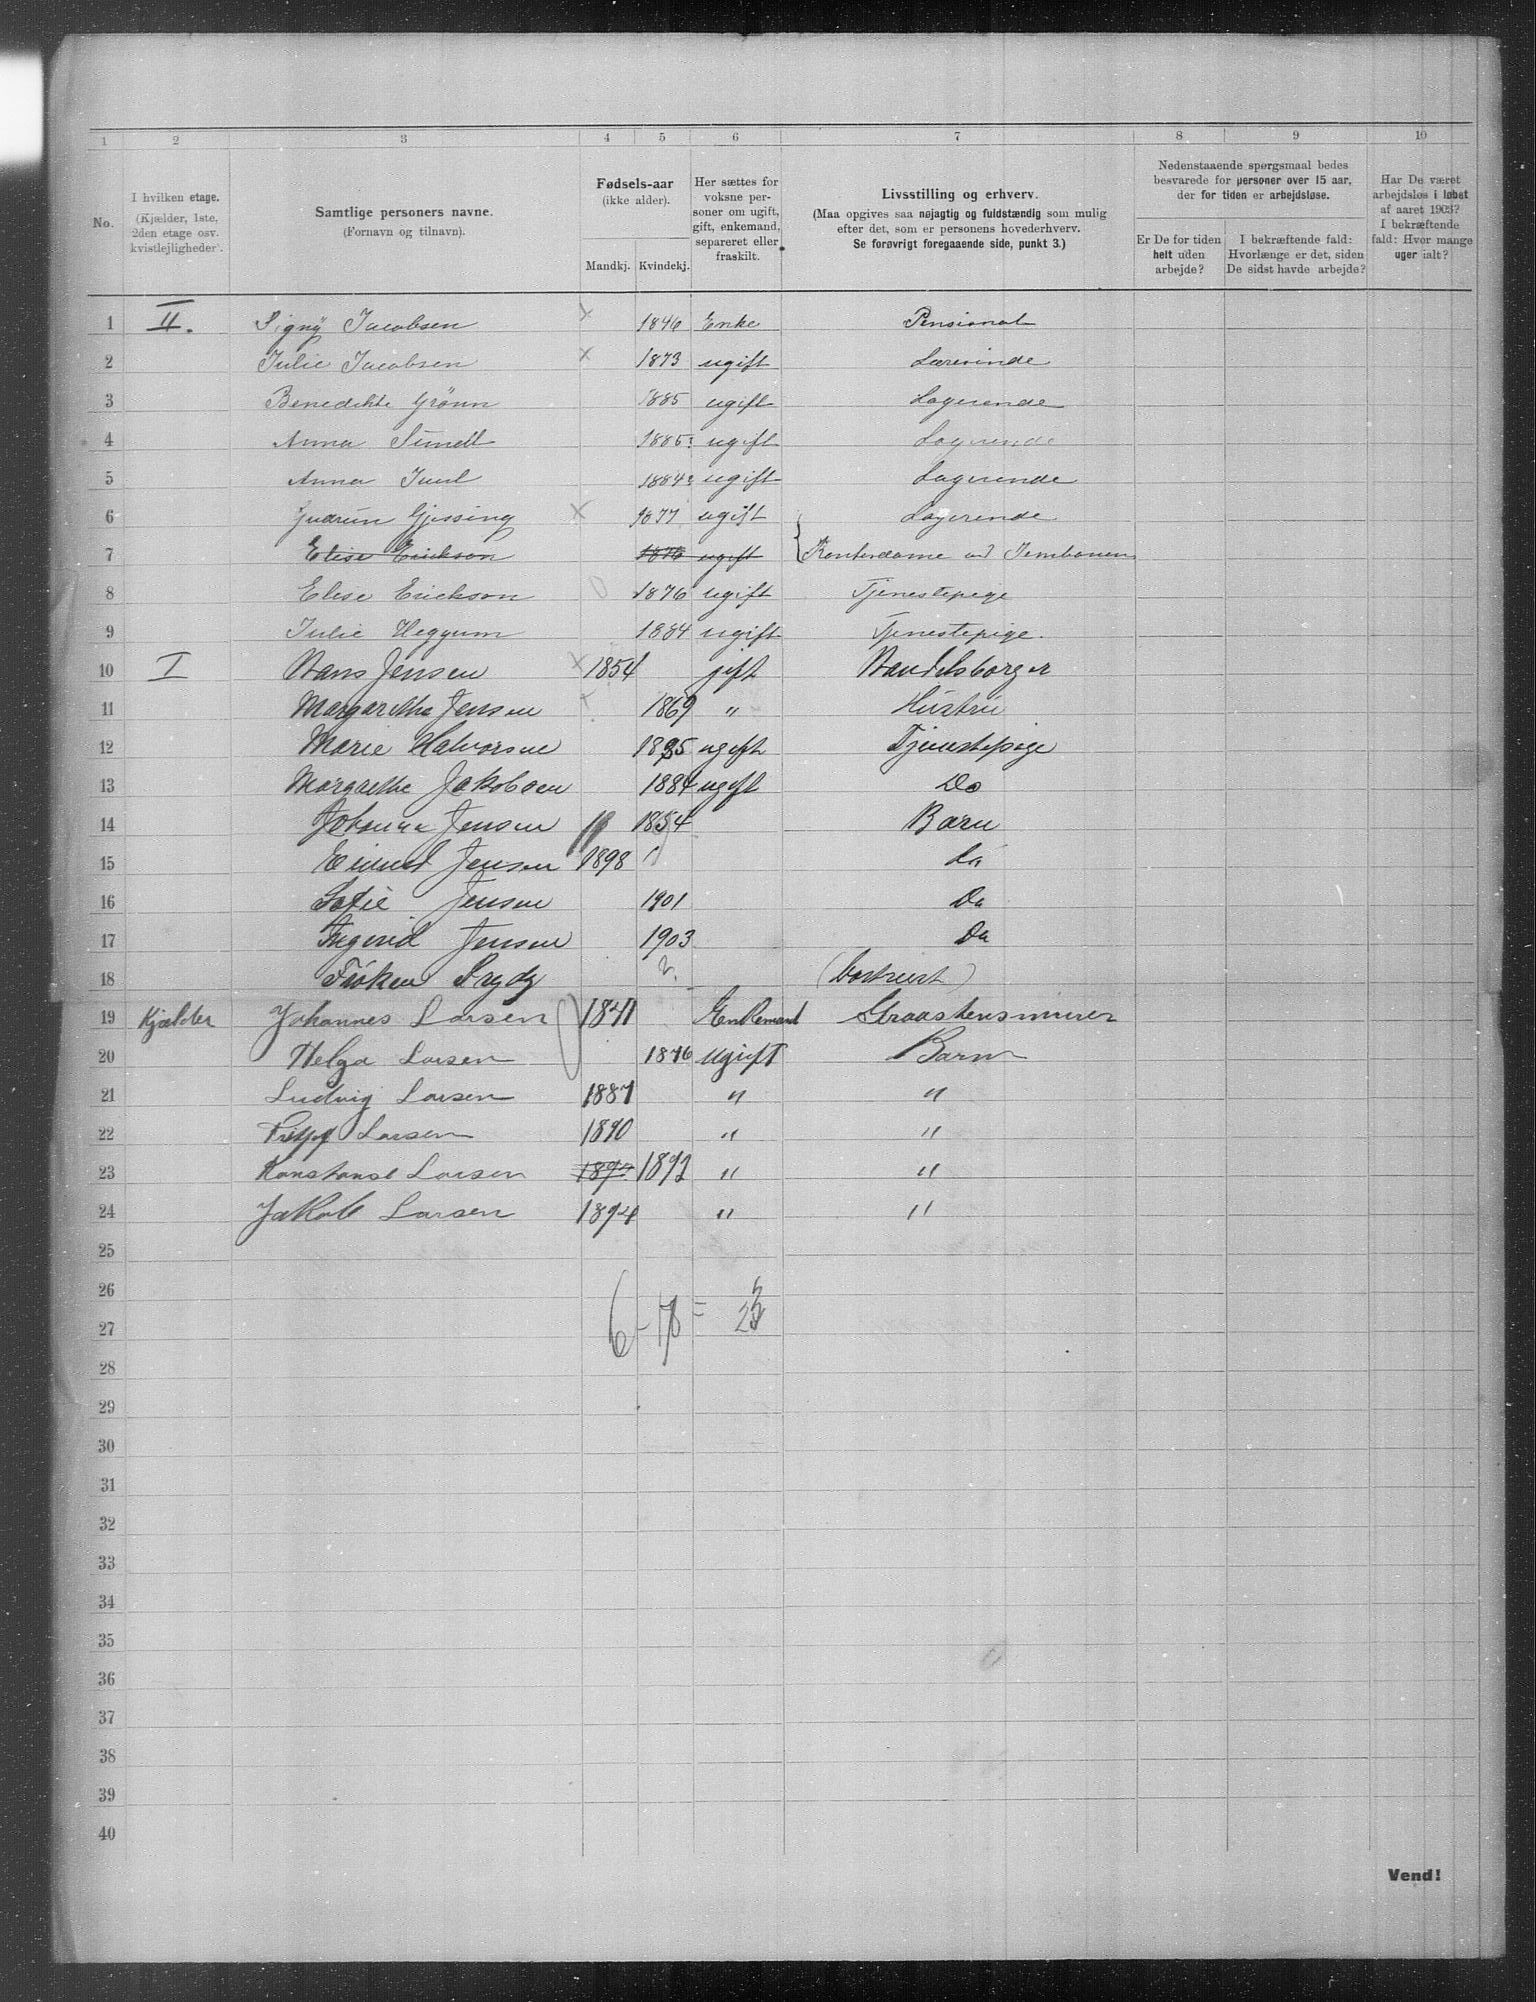 1 2 3 4 5 6 7 8 9 10
No.
I hvilken etage.
(Kjælder, 1ste, 2den etage osv. kvistlejligheder).
Samtlige personers navne.
(Fornavn og tilnavn).
Fødsels-aar
(ikke alder).
Mandkj. Kvindekj.
Her sættes for voksne personer om ugift, gift, enkemand, separeret eller fraskilt.
Livsstilling og erhverv.
(Maa opgives saa nøjagtig og fuldstændig som mulig efter det, som er personens hovederhverv.
Se forøvrigt foregaaende side, punkt 3.)
Nedenstaaende spørgsmaal bedes besvarede for personer over 15 aar, der for tiden er arbejdsløse.
Er De for tiden helt uden arbejde?
I bekræftende fald: Hvorlænge er det, siden De sidst havde arbejde?
Har De været arbejdsløs i løbet af aaret 1903?
I bekræftende fald: Hvor mange uger ialt?
1 II. Signÿ Jacobsen × 1846 Enke Pensionat
2 Julie Jacobsen × 1873 ugift Lærerinde
3 Benedikte Grönn 1885 ugift Logerende
4 Anna 1885 ugift Logerende
5 Anna Juul 1884 ugift Logerende
6 Gudrun Gjessing × 1877 ugift Logerende
7 Elise Erickson 1876 ugift { Kontordame ved Jernbanen
8 Elise Erickson 0 1876 ugift Tjenestepige
9 Julie Heggum 1884 ugift Tjenestepige.
10 I Hans Jensen × 1854 gift Handelsborger
11 Margarethe Jensen 1869 " Hustru
12 Marie Halvorsen ugift Tjenestepige
13 Margrethe Jakobsen 1884 ugift Do
14 Johanna Jensen Barn
15 Jensen 1898 Do
16 Sofie Jensen 1901 Do
17 Ingerid Jensen 1903 Do
18 Frøken ? (bortreist)
19 Kjælder Johannes Larsen 1841 Enkemand
20 Helga Larsen 1876 Ugift Barn
21 Ludvig Larsen 1887 " "
22 Larsen 1890 " "
23 Konstanse Larsen 1892 " "
24 Jakob Larsen 1894 " "
25
26
27
6 - 17 = 23
28
29
30
31
32
33
34
35
36
37
38
39
40
Vend!